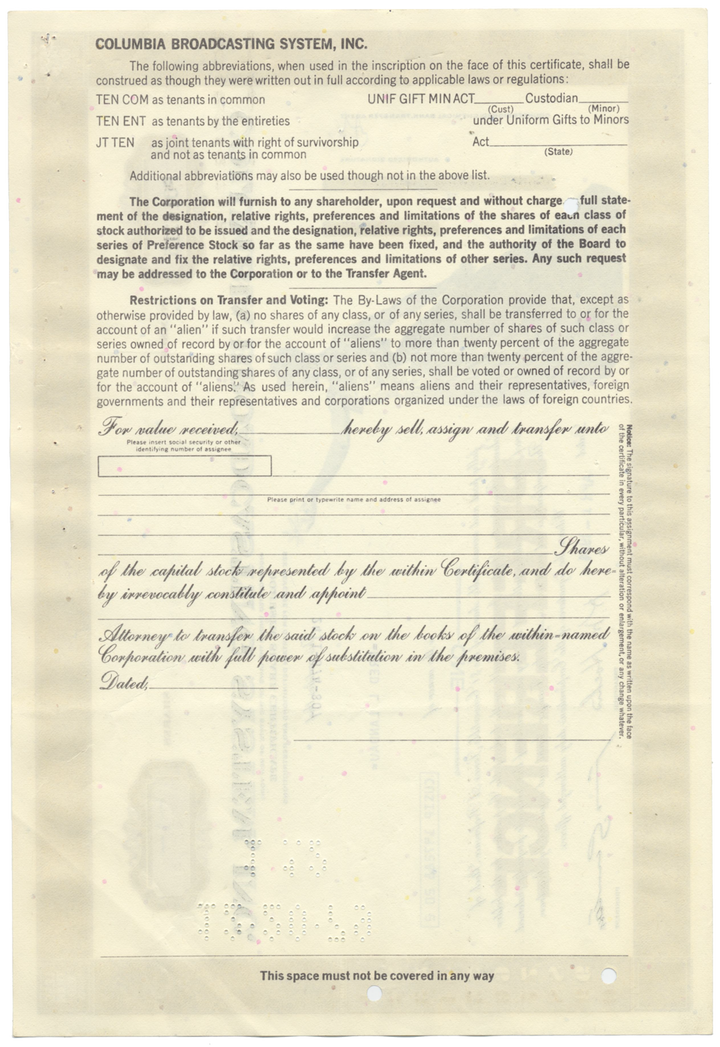 COLUMBIA BROADCASTING SYSTEM, INC.
The following abbreviations, when used in the inscription on the face of this certificate, shall be
construed as though they were written out in full according to applicable laws or regulations:
TEN COM as tenants in common
UNIF GIFT MIN ACT______Custodian______
(Cust) (Minor)
TEN ENT as tenants by the entireties
under Uniform Gifts to Minors
JT TEN as joint tenants with right of survivorship
and not as tenants in common
Act______
(State)
Additional abbreviations may also be used though not in the above list.
The Corporation will furnish to any shareholder, upon request and without charge full state-
ment of the designation, relative rights, preferences and limitations of the shares of each class of
stock authorized to be issued and the designation, relative rights, preferences and limitations of each
series of Preference Stock so far as the same have been fixed, and the authority of the Board to
designate and fix the relative rights, preferences and limitations of other series. Any such request
may be addressed to the Corporation or to the Transfer Agent.
Restrictions on Transfer and Voting: The By-Laws of the Corporation provide that, except as
otherwise provided by law, (a) no shares of any class, or of any series, shall be transferred to or for the
account of an "alien" if such transfer would increase the aggregate number of shares of such class or
series owned of record by or for the account of "aliens" to more than twenty percent of the aggregate
number of outstanding shares of such class or series and (b) not more than twenty percent of the aggre-
gate number of outstanding shares of any class, or of any series, shall be voted or owned of record by or
for the account of "aliens." As used herein, "aliens" means aliens and their representatives, foreign
governments and their representatives and corporations organized under the laws of foreign countries.
For value received,______hereby sell, assign and transfer unto
Please insert social security or other
identifying number of assignee
Please print or typewrite name and address of assignee
Shares
of the capital stock represented by the within Certificate, and do here-
by irrevocably constitute and appoint
Attorney to transfer the said stock on the books of the within-named
Corporation with full power of substitution in the premises.
Dated,
Notice: The signature to this assignment must correspond with the name as written upon the face
of the certificate in every particular, without alteration or enlargement, or any change whatever.
This space must not be covered in any way